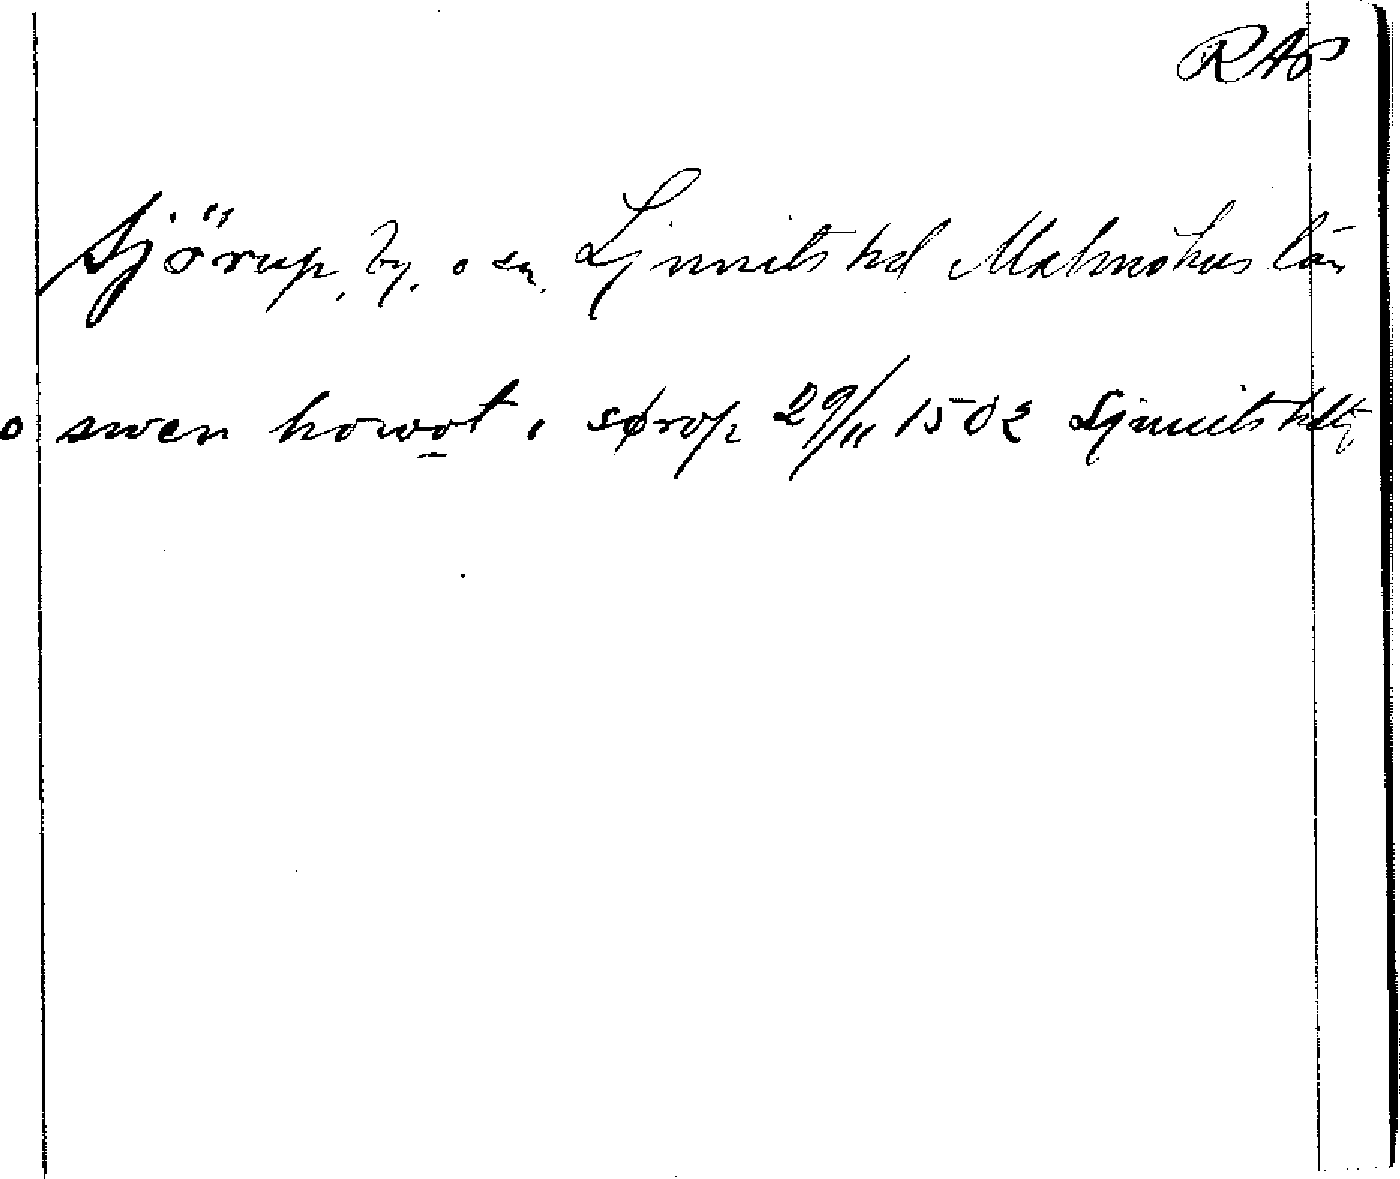 RAP
Sjörup, by. o sn. Ljunits hd Malmöhus län
o swen howot i sørop 29/11 1502 Ljunits hdtg